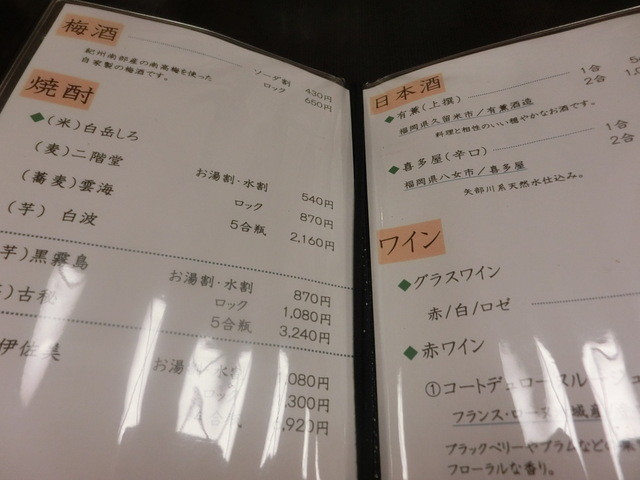 梅酒
紀州南部産の南高梅を使った
自家製の梅酒です。
ソーダ割 430円
ロック 650円
焼酎
◆(米)白岳しろ
(麦)二階堂
(蕎麦)雲海
(芋) 白波
お湯割・水割 540円
ロック 870円
5合瓶 2,160円
芋)黒霧島
古秘
お湯割・水割 870円
ロック 1,080円
5合瓶 3,240円
伊佐美
お湯 水割 1,080円
ロック 300円
920円
日本酒
◆有薫(上撰) 1合
2合
福岡県久留米市/有薫酒造
料理と相性のいい穏やかなお酒です。
◆喜多屋(辛口) 1合
2合
福岡県八女市/喜多屋
矢部川系天然水仕込み。
ワイン
◆グラスワイン
赤/白/ロゼ
◆赤ワイン
①コートデュローヌルージュ
フランス・ローヌ
ブラックベリーやプラムなどの
フローラルな香り。